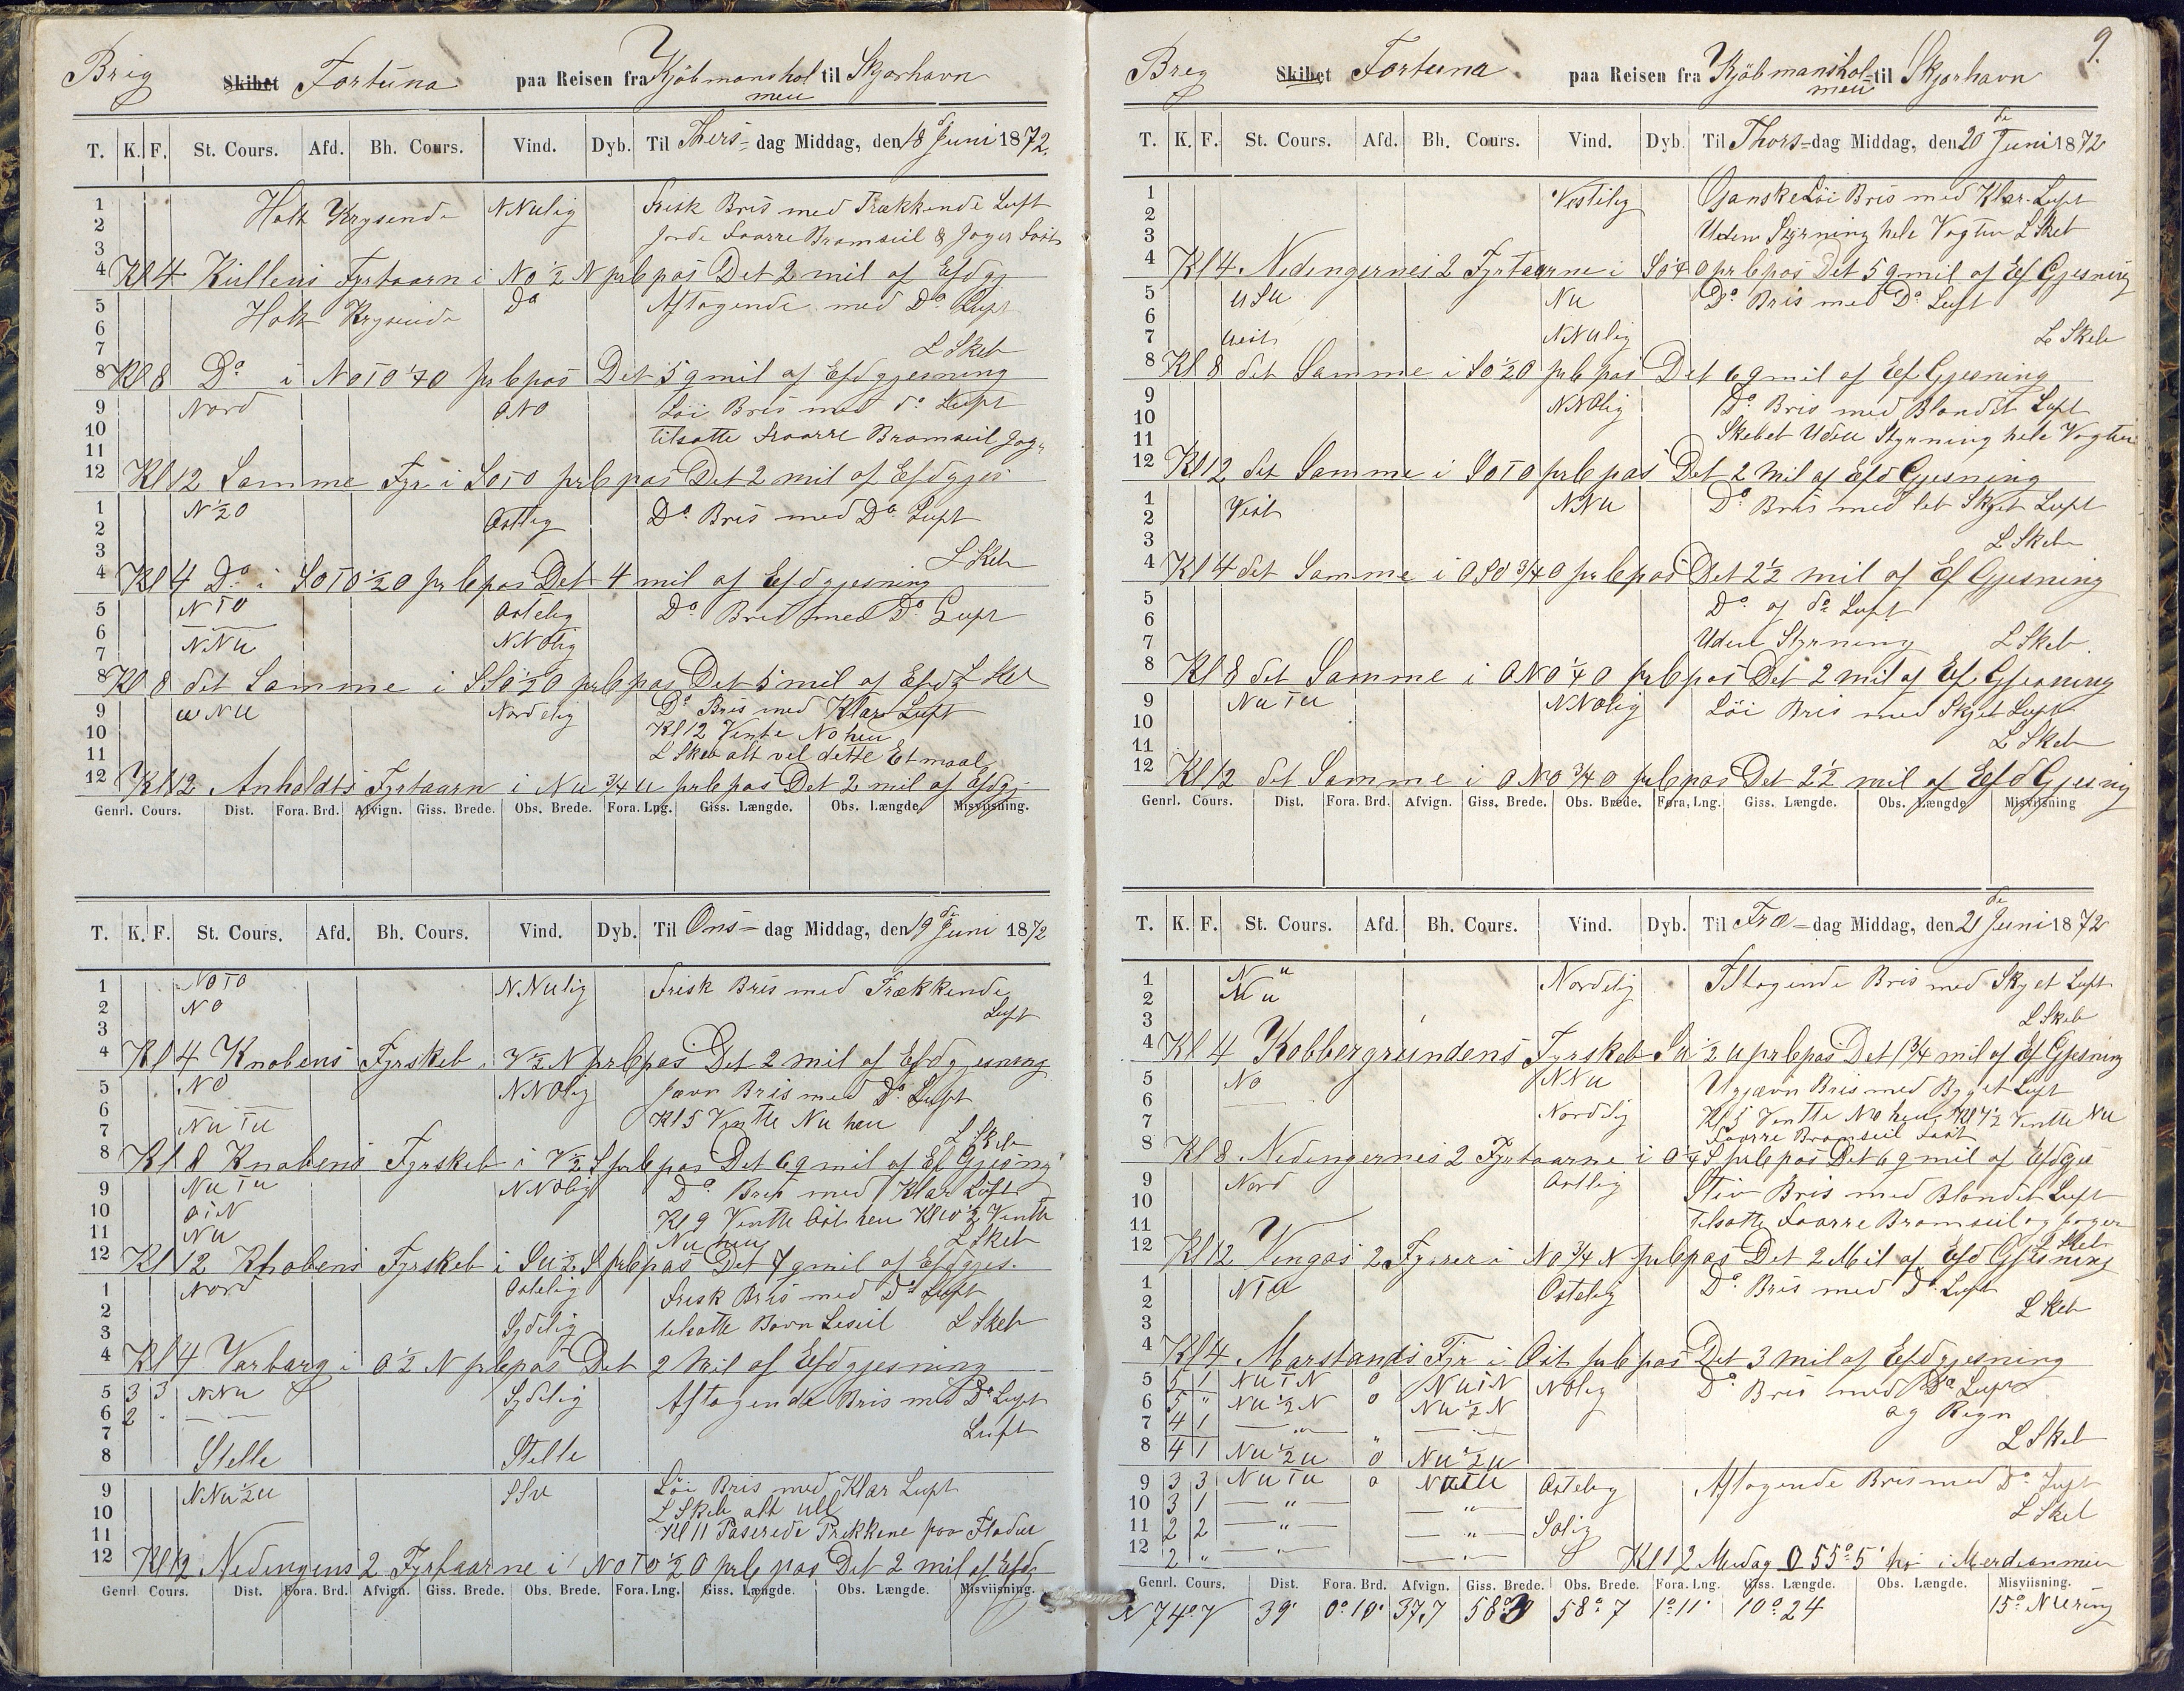 Brig Skibet Fortuna paa Reisen fra Kjöbmanshol til Skjorhavn
men
T. K. F. St. Cours. Afd. Bh. Cours. Vind. Dyb. Til Thers- dag Middag, den 18 d Juni 1872.
1 Holt Krysende NNulig Frisk Bris med Trækkende Luft
2
3 Foarre Bramseil & Jager
4 Kl 4 Kullens Fyrtaarn i No ½ N pr Cpas Det 2 mil af Efdgj
5 Holt Krysende Do Aftagende med Do Luft
6
7 L Skeb
8 Kl 8 Do i NoTO ¼O pr Cpas Det 5 qmil af Efdgjesning
9 Nord ONO Löi Bris med do Luft
10 tilsatte Foarre Bramseil Jag
11
12 Kl 12 Samme Fyr i SOTO pr Cpas Det 2 mil af Efdgjes
1 N½O Ostlig Do Bris med Do Luft
2
3 L Skeb
4 Kl 4 Do i SOTO½O pr Cpas Det 4 mil af Efdgjesning
5 NTO Ostelig Do Bris med Do Luft
6 NNu NNOlig
7
8 Kl 8 det Samme i SSO½O pr Cpas Det 5 mil af Efdg L Skeb
9 uNu Nordelig Do Bris med Klar Luft
10 Kl 12 Vente No heu
11 L Skeb alt vel dette Etmaal
12 Kl 12 Anholdts Fyrtaarn i Nu ¾ u pr Cpas Det 2 mil af Efdgj
Genrl. Cours. Dist. Fora. Brd. Afvign. Giss. Brede. Obs. Brede. Fora. Lng. Giss. Længde. Obs. Længde. Misviisning.
T. K. F. St. Cours. Afd. Bh. Cours. Vind. Dyb. Til Ons- dag Middag, den 19 de Juni 1872
1 NOTO NNulig Frisk Bris med Trækkende
2 NO Luft
3
4 Kl 4 Knobens Fyrskeb i V½N pr Cpas Det 2 mil af Efdgjesning
5 NO NNOlig Jævn Bris med Do Luft
6 Kl 5 Ventte Nu heu
7 NuTu L Skeb
8 Kl 8 Knobens Fyrskeb i V½S pr Cpas Det 6 qmil af Ef Gjesng
9 NuTu NNOlig Do Bris med Klar Luft
10 OTN Kl 9 Ventte Ost heu Kl 10½ Ventte
11 Nu Nu heu L Skeb
12 Kl 12 Knobens Fyrskeb i Su½S pr Cpas Det 7 qmil af Efdgjes.
1 Nord Ostelig Frisk Bris med Do Luft
2
3 Sydelig tilsatte Bovn Leseil L Skeb
4 Kl 4 Varbarg i O½N pr Cpas Det 2 Mil af Efdgjesning
5 3 3 NNu Sydelig Aftagende Bris med Do Luft
6 2
7 Luft
8 Stelle Stelle
9 NNu½u SSu Löi Bris med Klar Luft
10 L Skeb alt
11 Kl 11 Paserede Prekkene paa Fladen
12 Kl 12 Nedingens 2 Fyrtaarne i NOTO½O pr Cpas Det 2 mil af Efdg
Genrl. Cours. Dist. Fora. Brd. Afvign. Giss. Brede. Obs. Brede. Fora. Lng. Giss. Længde. Obs. Længde. Misviisning.
9.
Brig Skibet Fortuna paa Reisen fra Kjöbmanshol- til Skjorhavn
men
T. K. F. St. Cours. Afd. Bh. Cours. Vind. Dyb. Til Thors- dag Middag, den 20 de Juni 1872
1 Vestelig Ganske Löi Bris med Klar Luft
2
3 Uden Styrning hele Vagten L Skeb
4 Kl 4 Nedingernes 2 Fyrtaarne i SO¼O pr Cpas Det 5 qmil af Ef Gjesning
5 uSu Nu Do Bris med Do Luft
6
7 Vest NNulig L Skeb
8 Kl 8 det Samme i SO½O pr Cpas Det 6 qmil af Ef Gjesning
9 NNOlig Do Bris med Blandet Luft
10
11 Skebet Uden Styrning hele Vagten
12 Kl 12 det Samme i SOTO pr Cpas Det 2 Mil af Efd Gjesning
1 Vest NNu Do Bris med let Skyet Luft
2
3 L Skeb
4 Kl 4 det Samme i OSO ¾O pr Cpas Det 2½ mil af Ef Gjesning
5 Do og do Luft
6
7 Uden Styrning L Skeb
8 Kl 8 det Samme i ONO¼O pr Cpas Det 2 mil af Ef Gjesning
9 NuTu NNOlig Löi Bris med Skyet Luft
10
11 L Skeb
12 Kl 12 det Samme i ONO ¾O pr Cpas Det 2½ mil af Efd Gjesng
Genrl. Cours. Dist. Fora. Brd. Afvign. Giss. Brede. Obs. Brede. Fora. Lng. Giss. Længde. Obs. Længde Misviisning
T. K. F. St. Cours. Afd. Bh. Cours. Vind. Dyb. Til Fræ- dag Middag, den 21 de Juni 1872
1 Nordelig Tiltagende Bris med Skyet Luft
2 Nu
3 L Skeb
4 Kl 4 Kobbergrundens Fyrskeb Su½u pr Cpas Det 1¾ mil af Ef Gjesning
5 No NNu Ujævn Bris med Byget Luft
6 Nordelig Kl 5 Ventte No heu Kl 7½ Ventte Nu
7 Foarre Bramseil fast
8 Kl 8 Nedingernes 2 Fyrtaarne i O¼S pr Cpas Det 6 qmil af Efdgjes
9 Nord Ostlig Stiv Bris med Blandet Luft
10
11 Tilsatte Foarre Bramseil og Jager
12 Kl 12 Vengas 2 Fyrer i NO¾N pr Cpas Det 2 Mil af Efd Gjesning L Skeb
1 NTu Ostelig Do Bris med Do Luft
2
3 L Skeb
4 Kl 4 Marstands Fyr i Ost pr Cpas Det 3 Mil af Efdgjesning
5 5 1 NuTN 0 NuTN NOlig Do Bris med Do Luft
6 5 " Nu½N 0 Nu½N og Regn
7 4 1 — " — — " —
8 4 1 Nu½u 0 Nu½u L Skeb
9 3 3 NuTu 0 NuTu Ostelig Aftagende Bris med Do Luft
10 3 1 — " — — " — L Skeb
11 2 2 — " — — " — SOlig
12 2 " — " — — " — Kl 12 Medag O 55° 5' hj i Merdianmen
Genrl. Cours. Dist. Fora. Brd. Afvign. Giss. Brede. Obs. Brede. Fora. Lng. Giss. Længde. Obs. Længde. Misviisning.
N 74° V 39' 0° 10' 37,7 58° 58° 7 1° 11' 10° 24 15° NVring